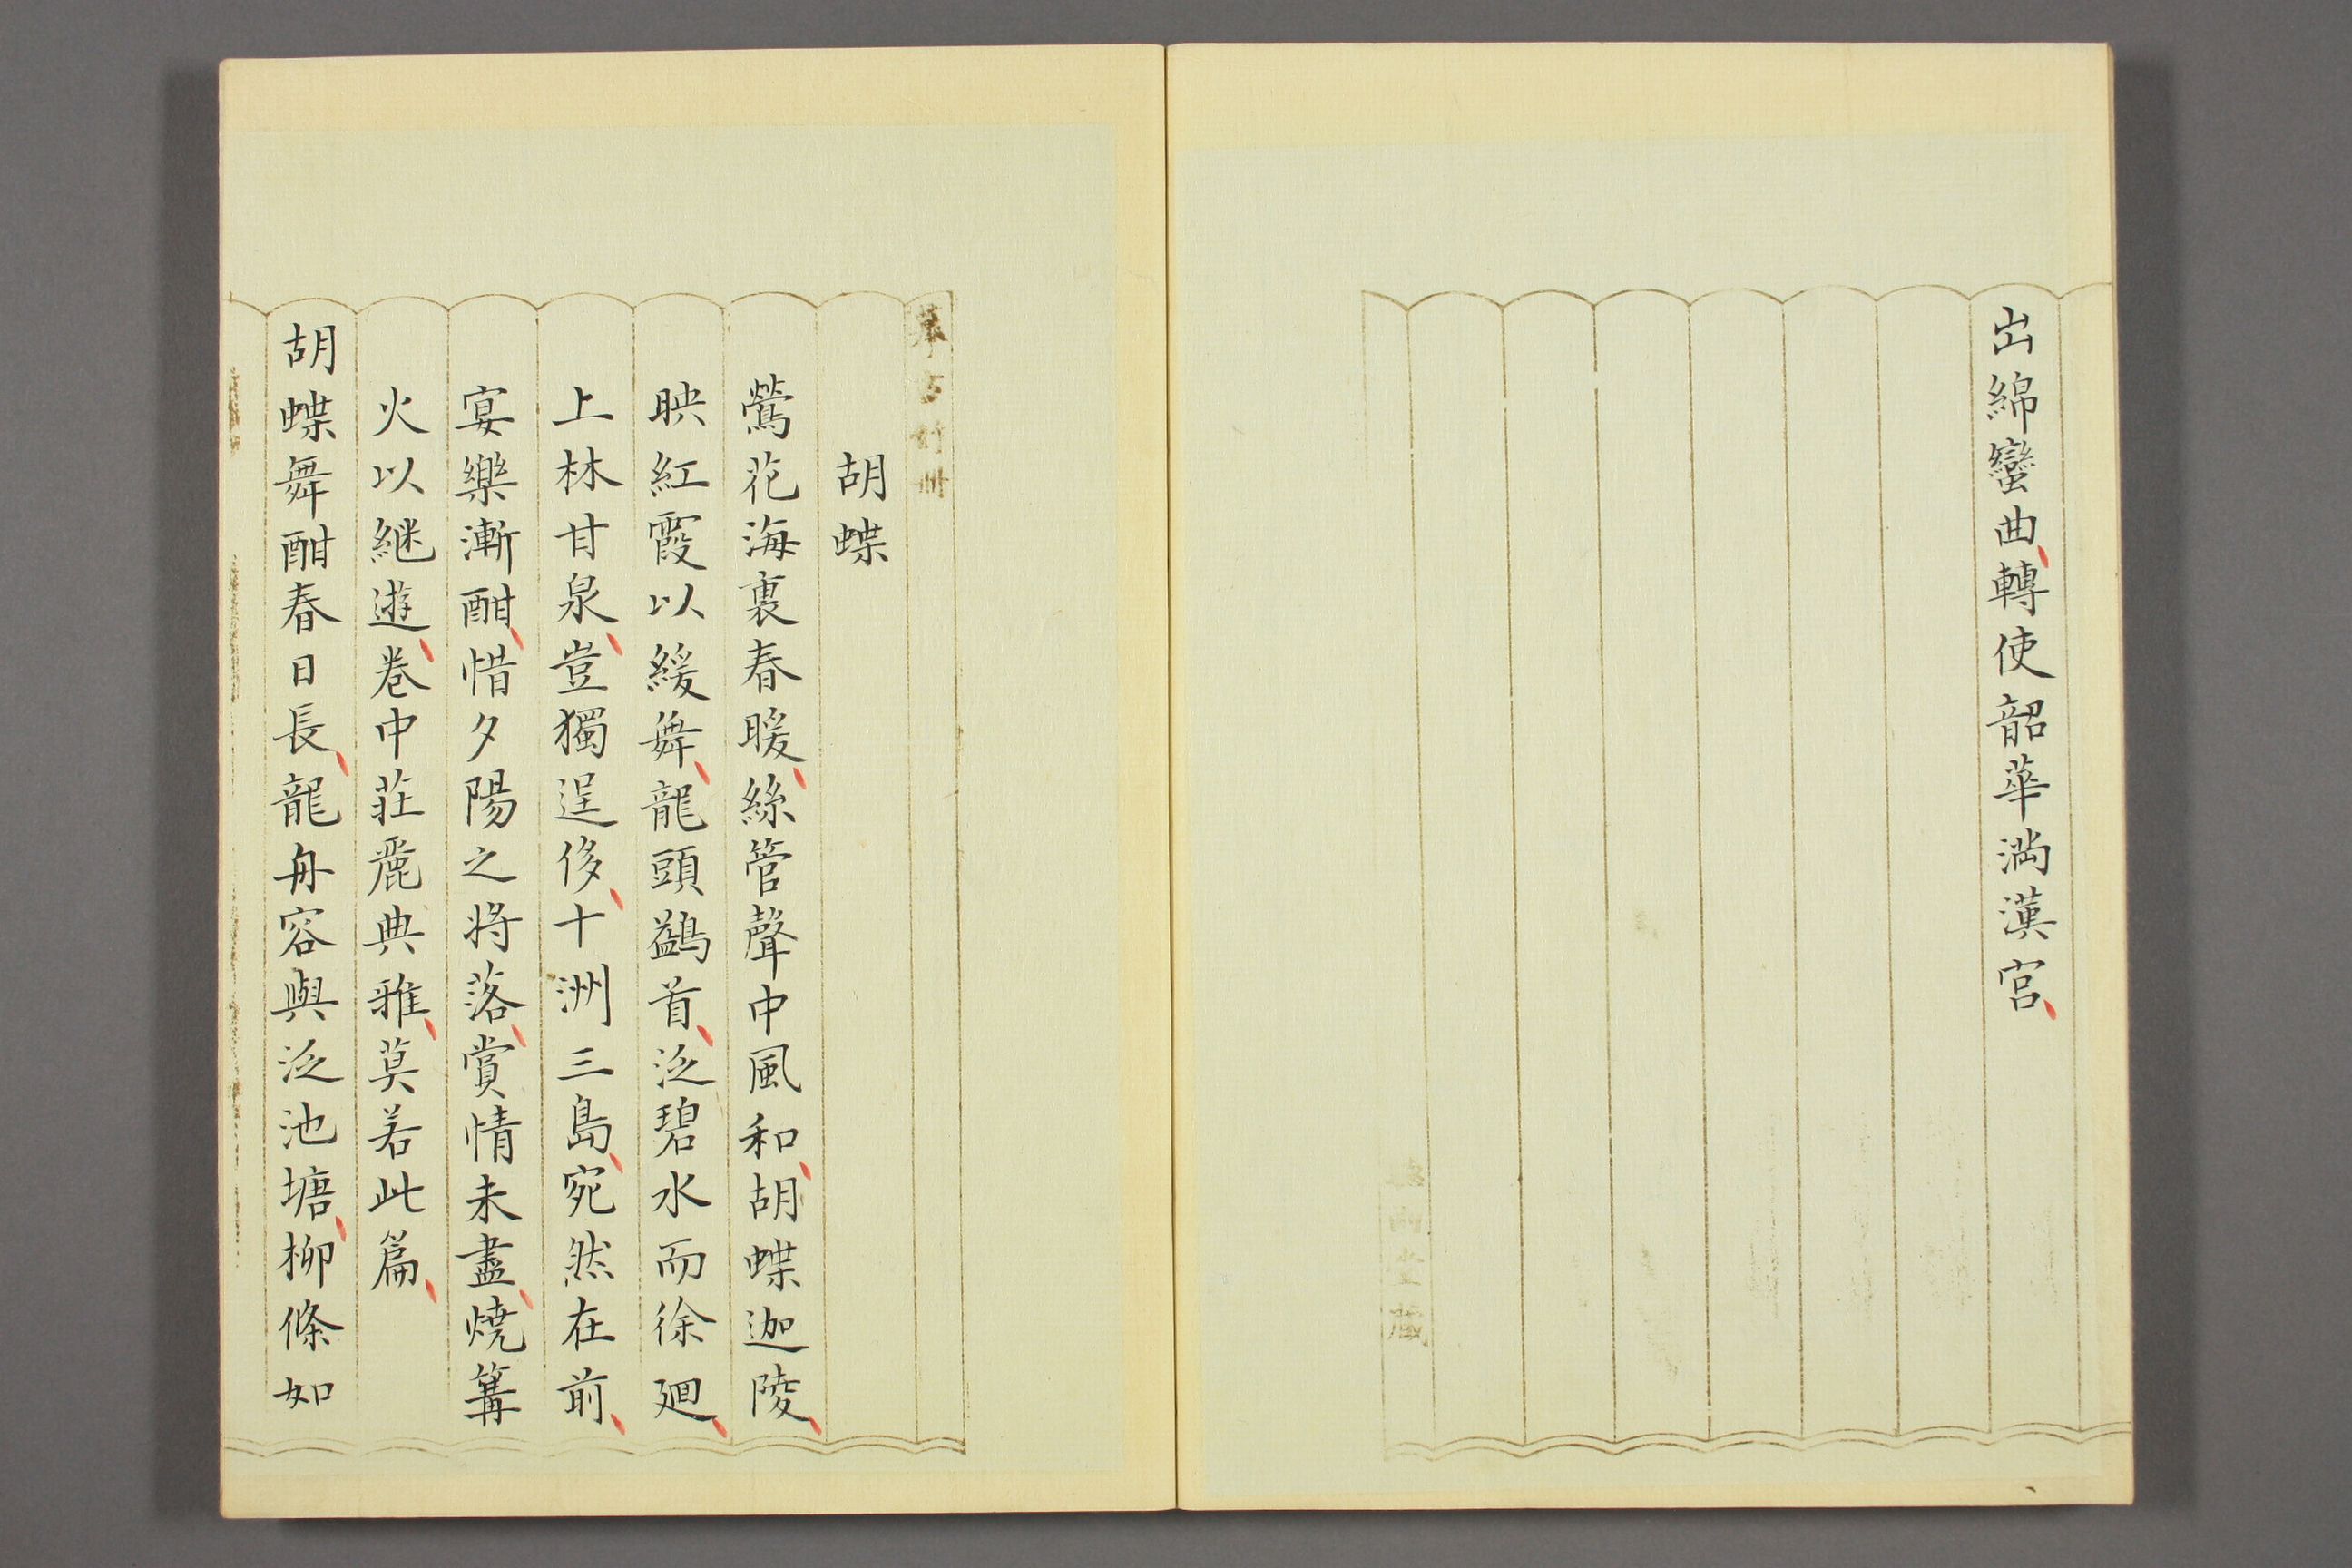 出綿蠻曲、轉使韶華满漢宮、
胡蝶
鶯花海裏春暖、絲管聲中風和、胡蝶迦陵、
映紅霞以緩舞、龍頭鷁首、泛碧水而徐廻、
上林甘泉、豈獨逞侈、十洲三島、宛然在前、
宴樂漸酣、惜夕陽之将落、賞情未盡、燒篝
火以継遊、卷中莊麗典雅、莫若此篇、
胡蝶舞酣春日長、龍舟容與泛池塘、柳條如